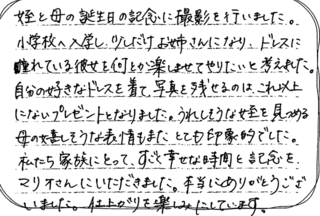 姪と母の誕生日の記念に撮影を行いました。
小学校へ入学し、少しだけお姉さんになり、ドレスに
憧れている彼女を何とか楽しませてやりたいと考えました。
自分の好きなドレスを着て、写真を残せるのは、これ以上
にないプレゼントとなりました。うれしそうな姪を見つめる
母の嬉しそうな表情もまた とても印象的でした。
私たち家族にとって、すごく幸せな時間と記念を、
マリオさんにいただきました。本当にありがとうござ
いました。仕上がりを楽しみにしています。